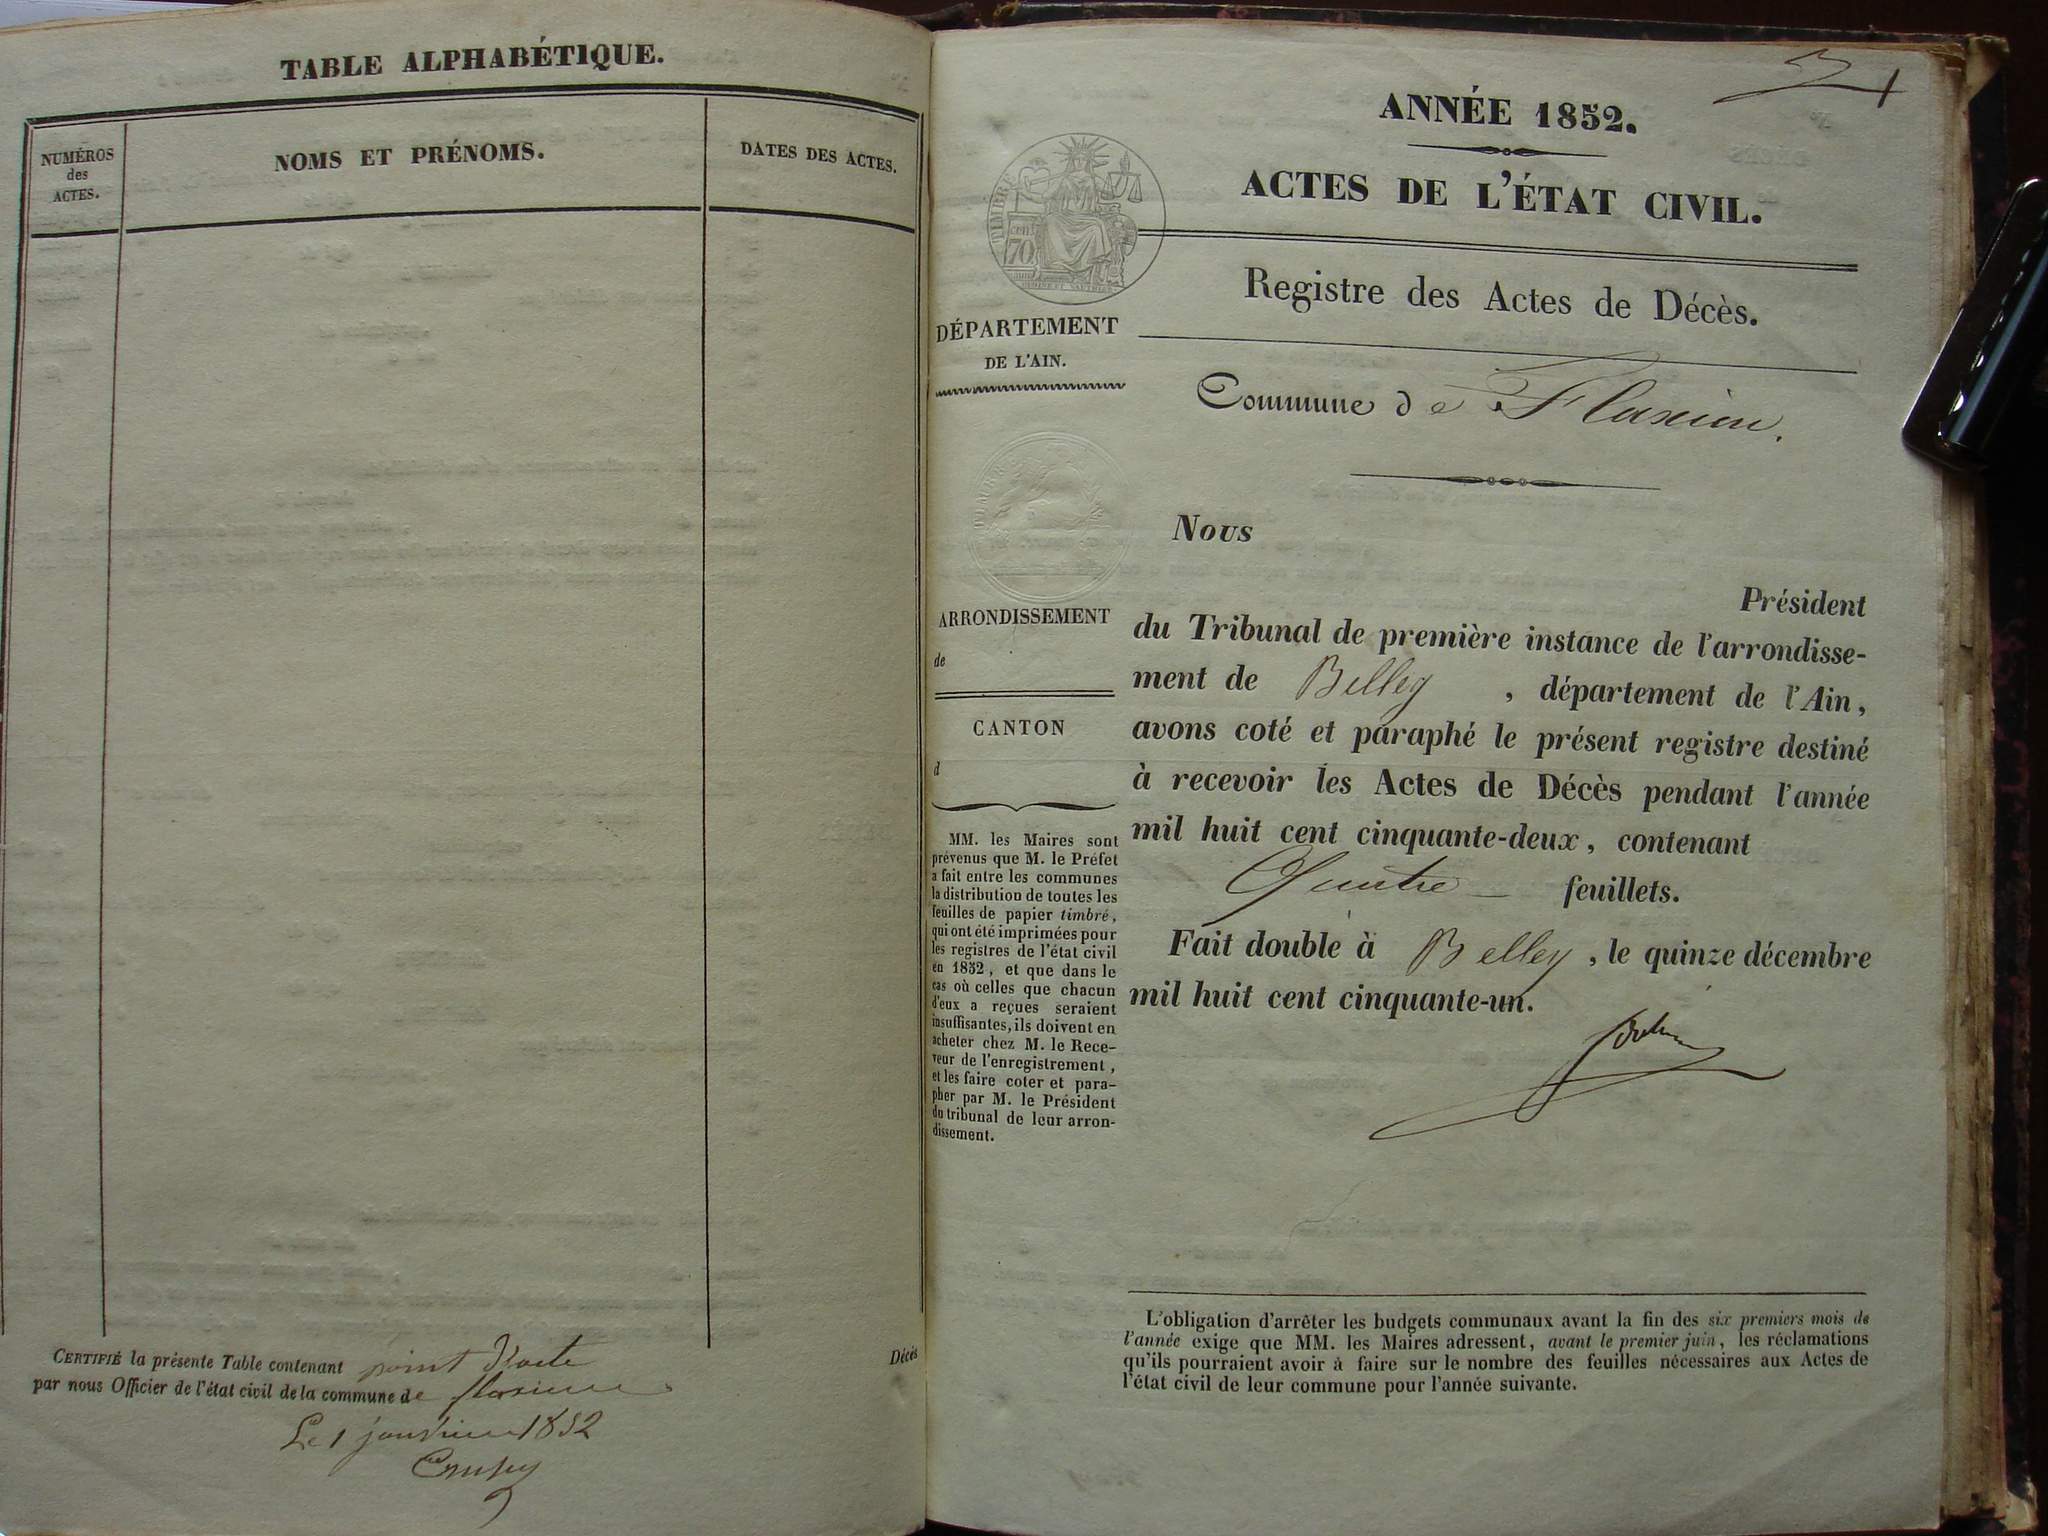 TABLE ALPHABÉTIQUE.
NUMÉROS
des
ACTES.
NOMS ET PRÉNOMS.
DATES DES ACTES.
CERTIFIÉ la présente Table contenant point d'acte Décès
par nous Officier de l'état civil de la commune de flaxieu
Le 1 janvier 1852
1
ANNÉE 1852.
ACTES DE L'ÉTAT CIVIL.
TIMBRE
cent
70
Registre des Actes de Décès.
DÉPARTEMENT
DE L'AIN.
Commune de Flaxieu.
TIMBRE
ARRONDISSEMENT
de
CANTON
d
MM. les Maires sont
prévenus que M. le Préfet
a fait entre les communes
la distribution de toutes les
feuilles de papier timbré,
qui ont été imprimées pour
les registres de l'état civil
en 1852, et que dans le
cas où celles que chacun
d'eux a reçues seraient
insuffisantes, ils doivent en
acheter chez M. le Rece-
veur de l'enregistrement,
et les faire coter et para-
pher par M. le Président
du tribunal de leur arron-
dissement.
Nous
Président
du Tribunal de première instance de l'arrondisse-
ment de Belley, département de l'Ain,
avons coté et paraphé le présent registre destiné
à recevoir les Actes de Décès pendant l'année
mil huit cent cinquante-deux, contenant
Quatre feuillets.
Fait double à Belley, le quinze décembre
mil huit cent cinquante-un.
L'obligation d'arrêter les budgets communaux avant la fin des six premiers mois de
l'année exige que MM. les Maires adressent, avant le premier juin, les réclamations
qu'ils pourraient avoir à faire sur le nombre des feuilles nécessaires aux Actes de
l'état civil de leur commune pour l'année suivante.